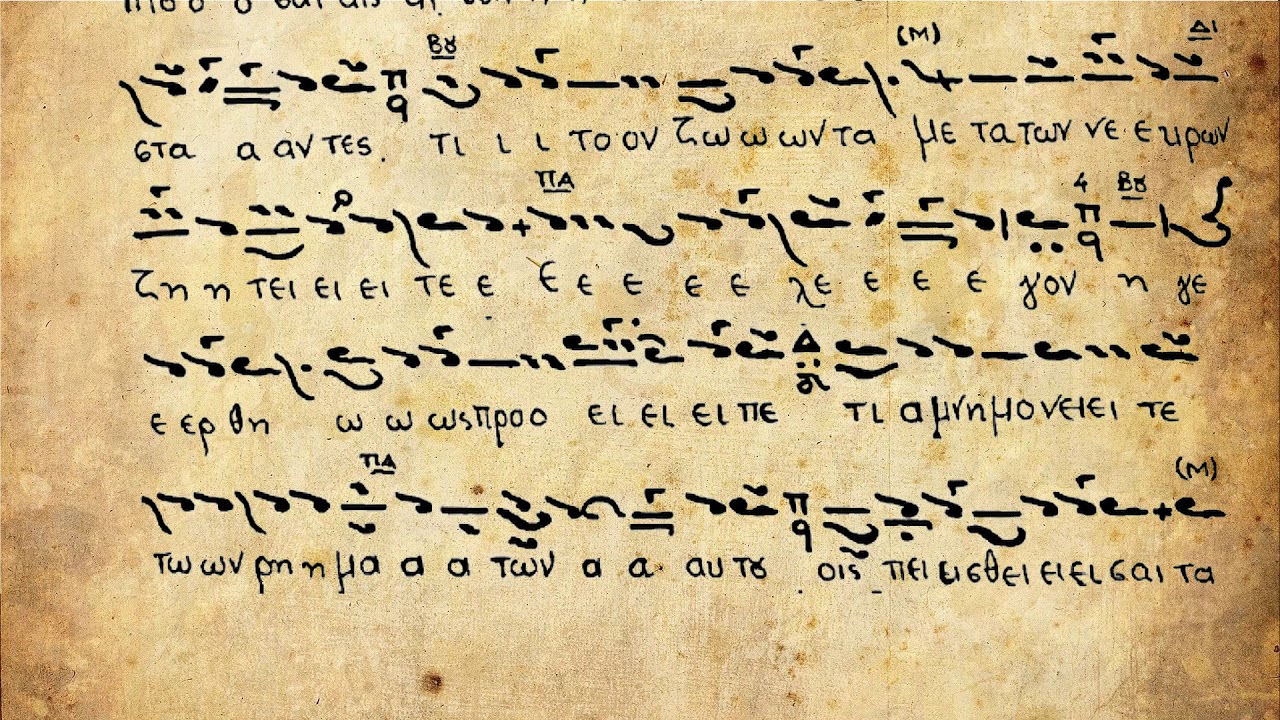 στα α αν τες. τι ι ι το ον ζω ω ω ων τα με τα των νε ε κρων
ζη η τει ει ει τε ε ε ε ε ε ε λε ε ε ε γον η γε
ε ερ θη ω ω ως προ ο ει ει ει πε τι α μνη μο νει ει τε
τω ων ρη η μα α α των α α αυ τȣ οις πει εισ θει ει ει σαι τα